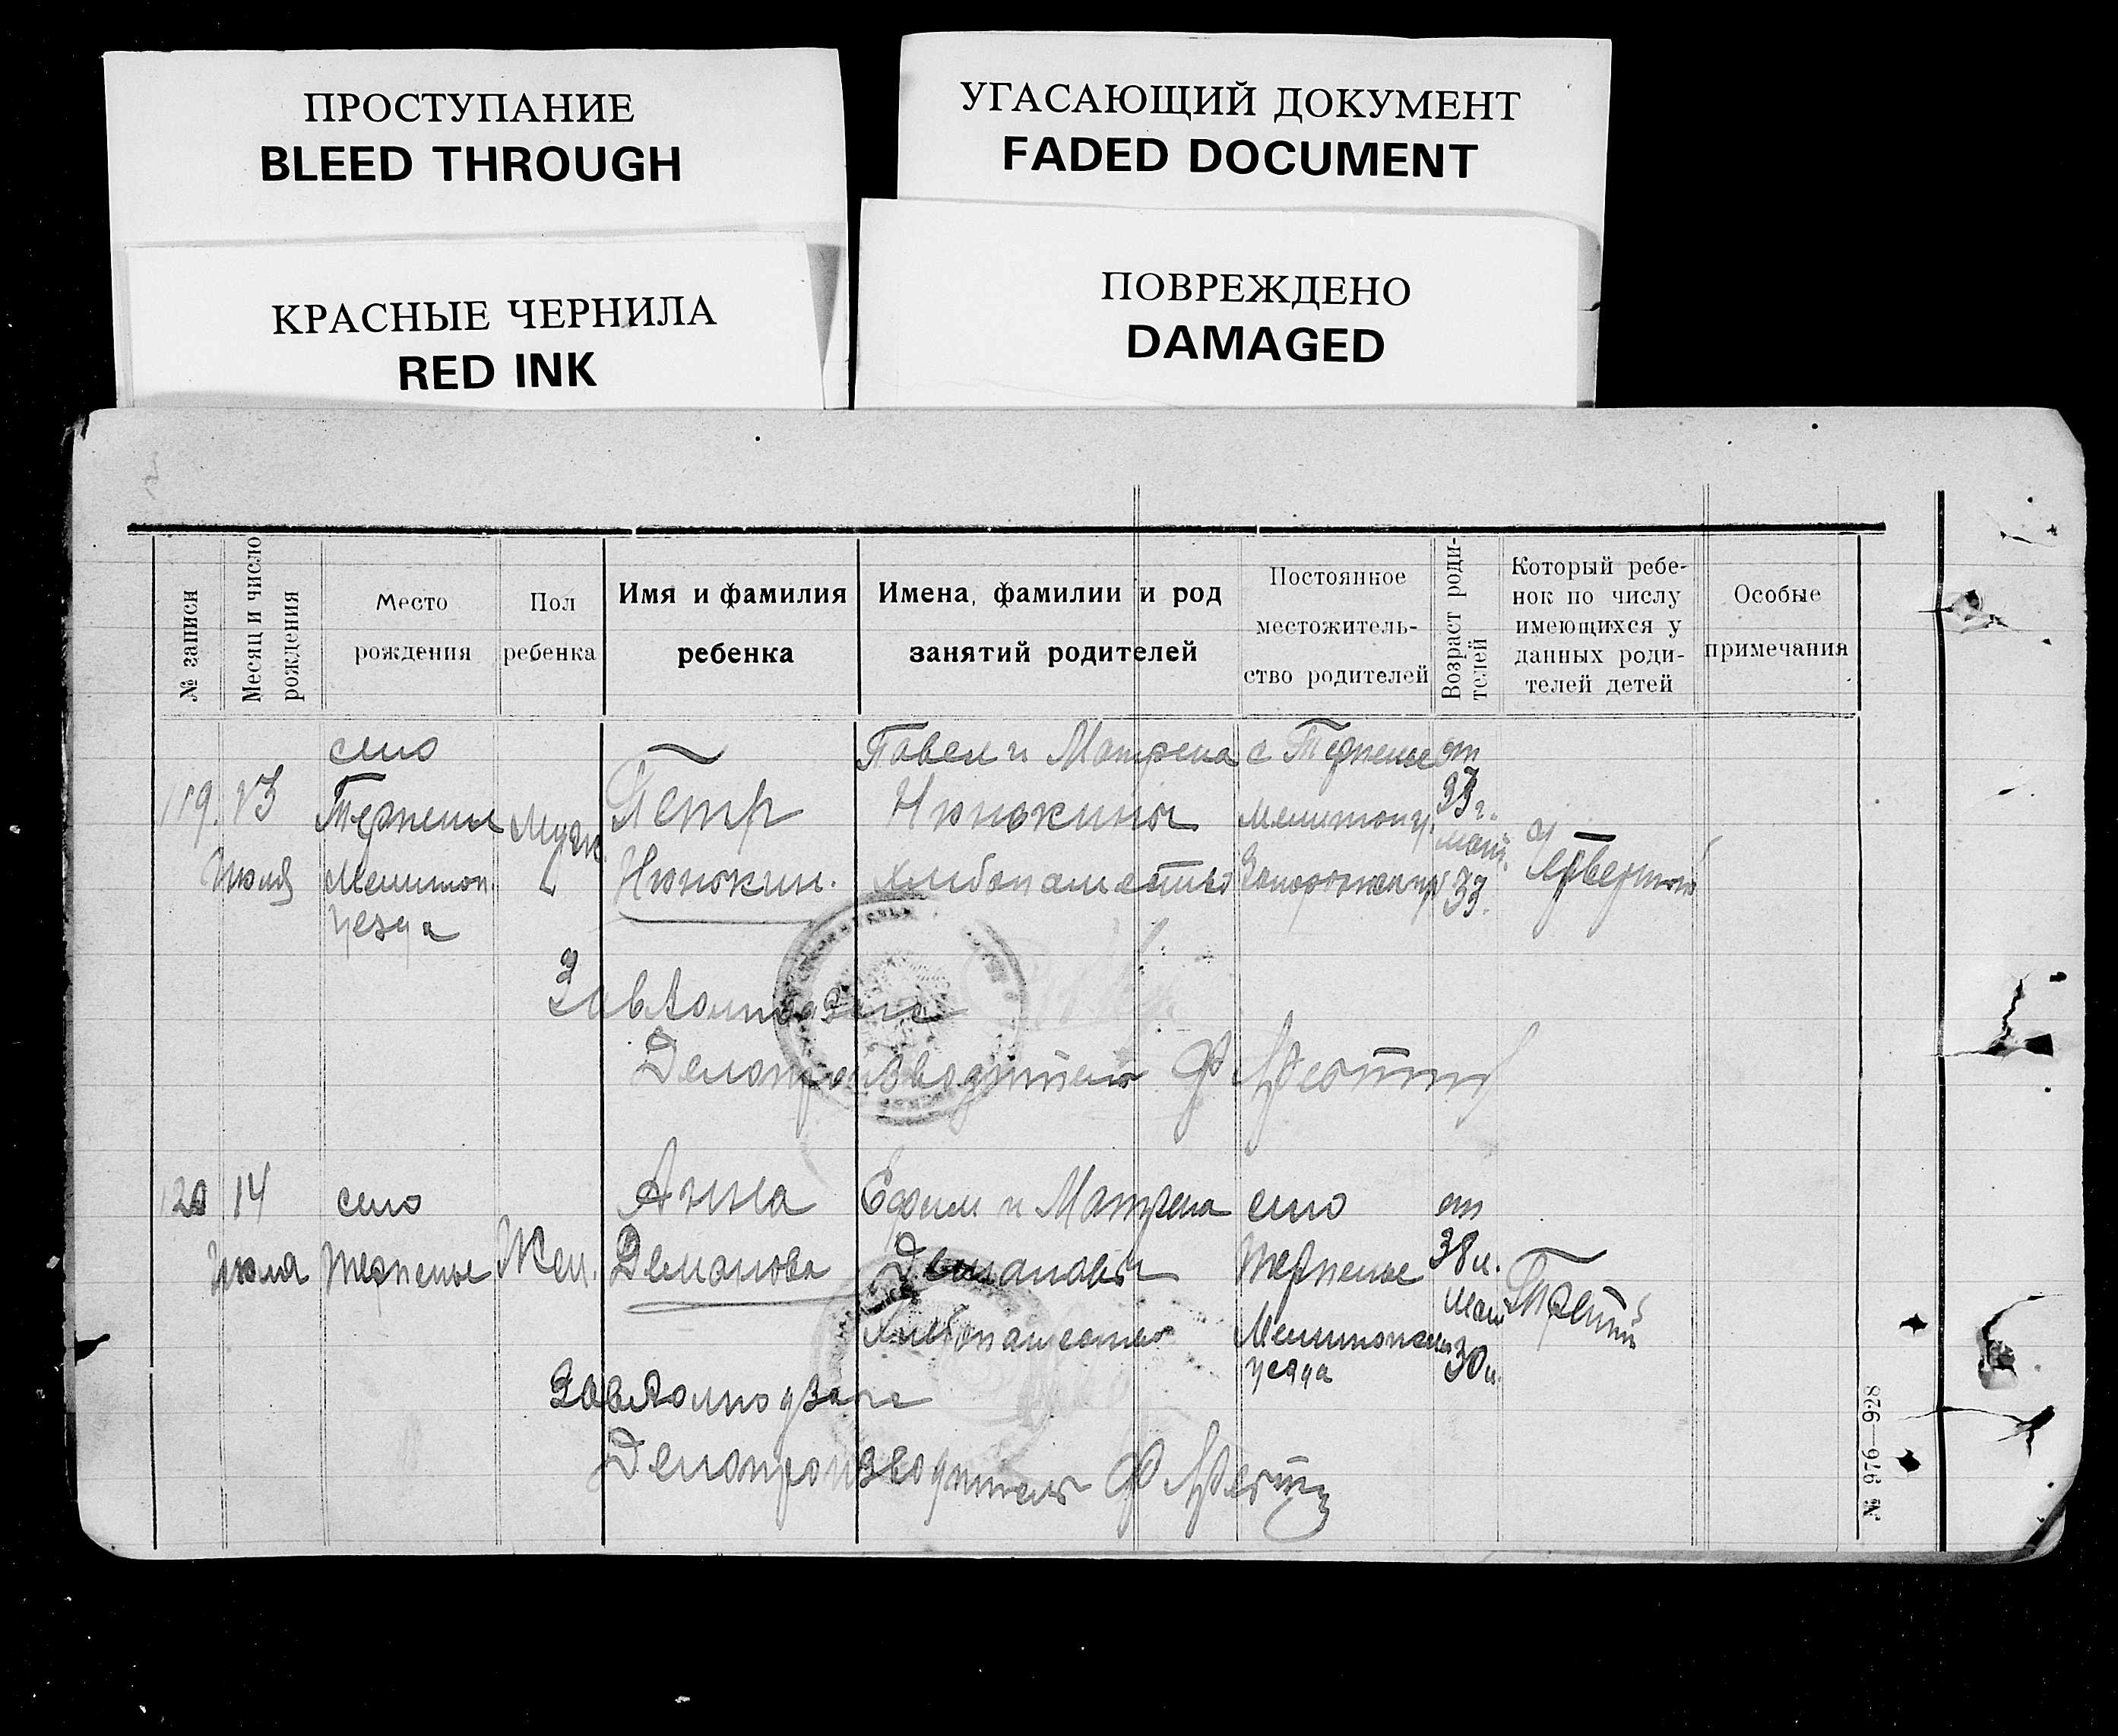 ПРОСТУПАНИЕ
BLEED THROUGH
УГАСАЮЩИЙ ДОКУМЕНТ
FADED DOCUMENT
КРАСНЫЕ ЧЕРНИЛА
RED INK
ПОВРЕЖДЕНО
DAMAGED
№ записи
Месяц и число рождения
Место рождения
Пол ребенка
Имя и фамилия ребенка
Имена, фамилии и род занятий родителей
Постоянное местожительство родителей
Возраст родителей
Который ребенок по числу имеющихся у данных родителей детей
Особые примечания
119.
13
Июля
село
Терпенье
Мелитоп.
уезда
Муж.
Петр
Нюнькин.
Павел и Матрена
Нюнькины
Хлебопашество
с Терпенье
Мелитоп у.
Запорожск
от
33 г.
мат.
33.
четвертый
Делопроизводитель Ф
120
14
Июля
село
Терпенье
Жен.
Анна
Деманова
Ефим и Матрена
Демановы
Хлебопашество
село
Терпенье
Мелитопск
уезда
от
38 л.
мат
30 л.
Третий
Делопроизводитель Ф
№ 976—928